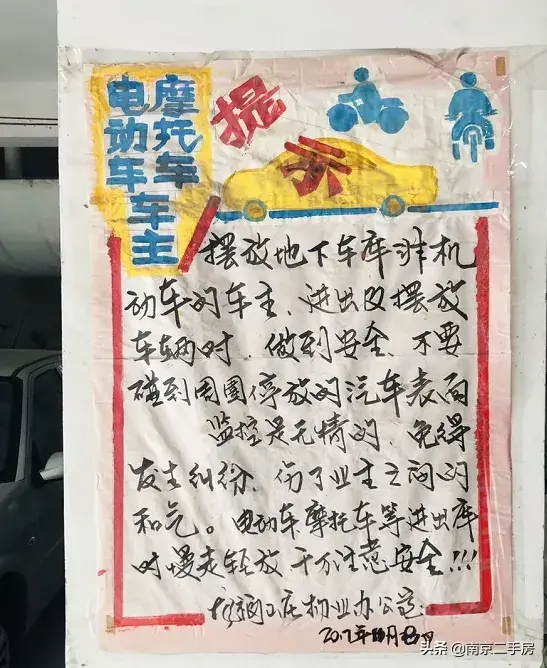 摩托车
电动车车主
提示
摆放地下车库非机
动车的车主、进出及摆放
车辆时、做到安全、不要
碰到周围停放的汽车表面
监控是无情的、免得
发生纠纷、伤了业主之间的
和气。电动车摩托车等进出库
时慢走轻放千万注意安全!!!
物业办公
2017年10月
头条 @南京二手房